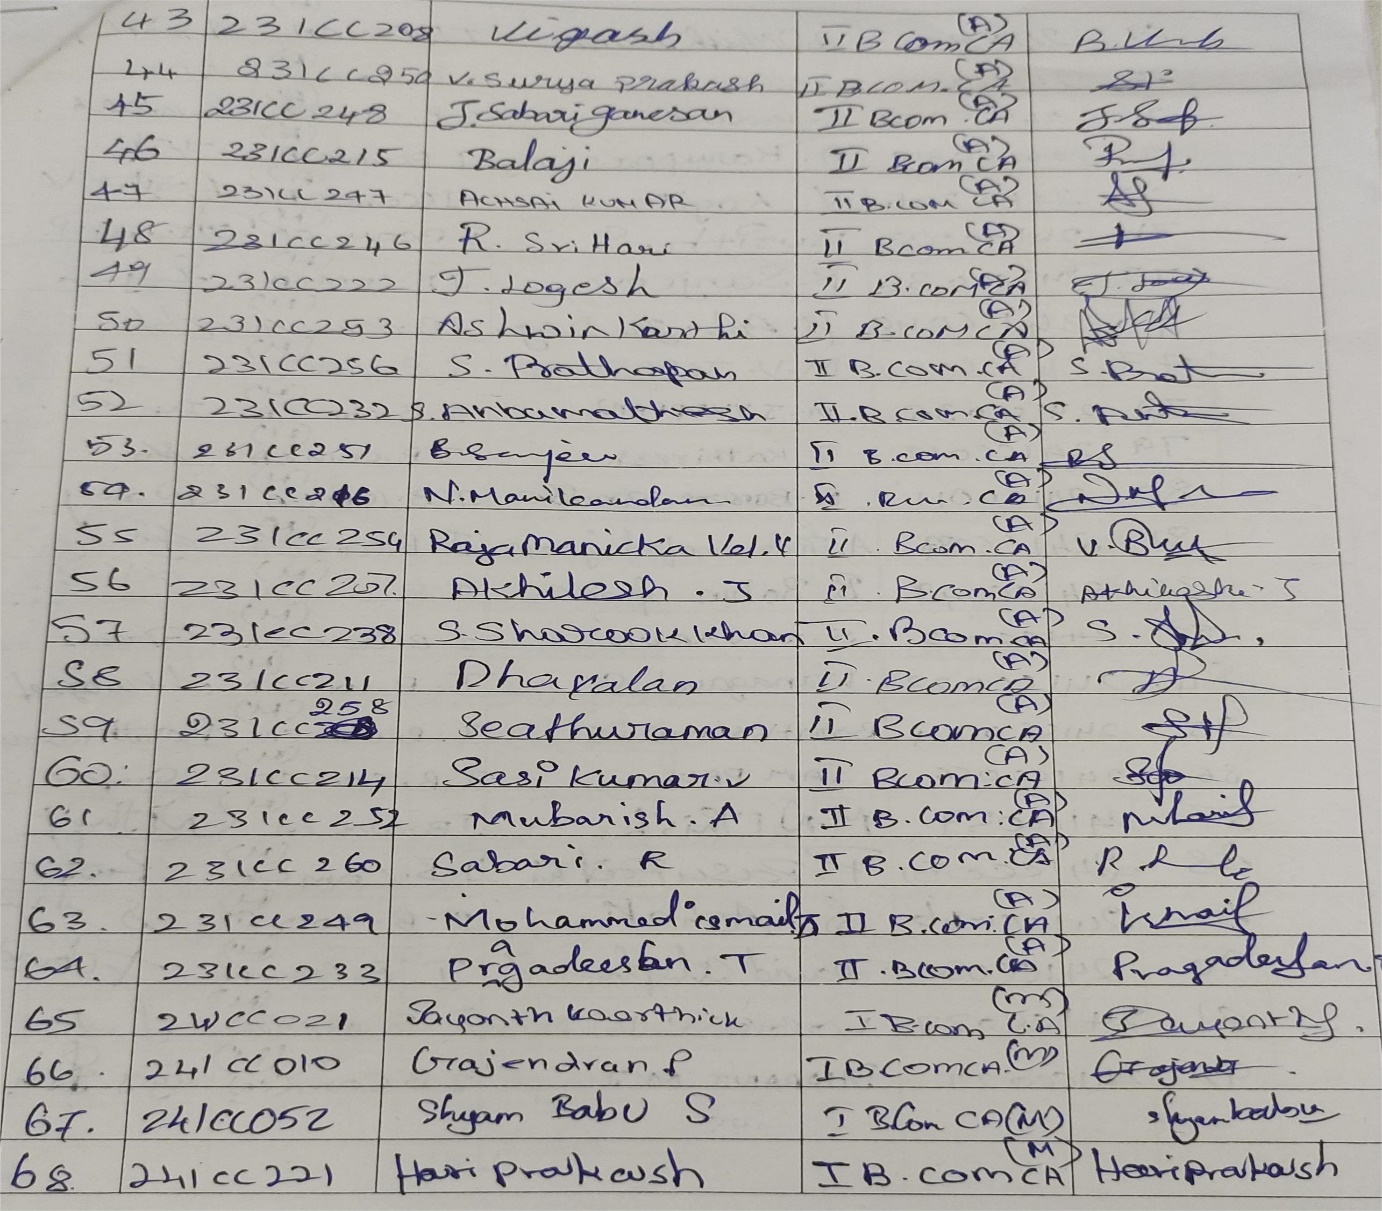 43 231CC208 Vigash II B Com CA (A) B.
44 231CC250 V. Surya Prakash II BCOM. CA (A) SP
45 231CC248 J. Sabari ganesan II Bcom CA (A)
46 231CC215 Balaji II Bcom CA (A)
47 231CC247 ACHSAI KUMAR II B.COM CA (A)
48 231CC246 R. Sri Hari II Bcom CA (A)
49 231CC222 J. Logesh II B.com CA (A)
50 231CC253 Ashwin Kanthi II B.COM CA (A)
51 231CC256 S. Prathapan II B.com.CA (A) S.
52 231CC232 S. II.B com CA (A) S.
53. 231CC251 B. Sanjeev II B.com.CA (A) BS
54. 231CC216 N. Manikandan II CA (A)
55 231CC254 Raja Manicka Vel.V II. Bcom.CA (A) V.
56 231CC207 Akhilesh. J II. Bcom CA (A)
57 231CC238 S. Sharookkhan II. Bcom CA (A) S.
58 231CC211 Dhayalan II. Bcom CA (A)
59 231CC 258 Seathuraman II Bcom CA (A)
60. 231CC214 Sasi Kumar.v II Bcom:CA (A)
61 231CC252 Mubarish. A II B.com:CA (A)
62. 231CC 260 Sabari. R II B.com.CA (A) R
63. 231CC249 Mohammed ismail II B.com.CA (A) Ismail
64. 231CC233 Pragadeesan. T II.Bcom.CA (A) Pragadeesan
65 241CC021 Jayanth kaarthick I Bcom CA (M)
66. 241CC010 Gajendran. P I BCOMCA.(M)
67. 241CC052 Shyam Babu S I BCom CA(M) Shyambabu
68 241CC221 Hari prakash I B.com CA (M) Hariprakash